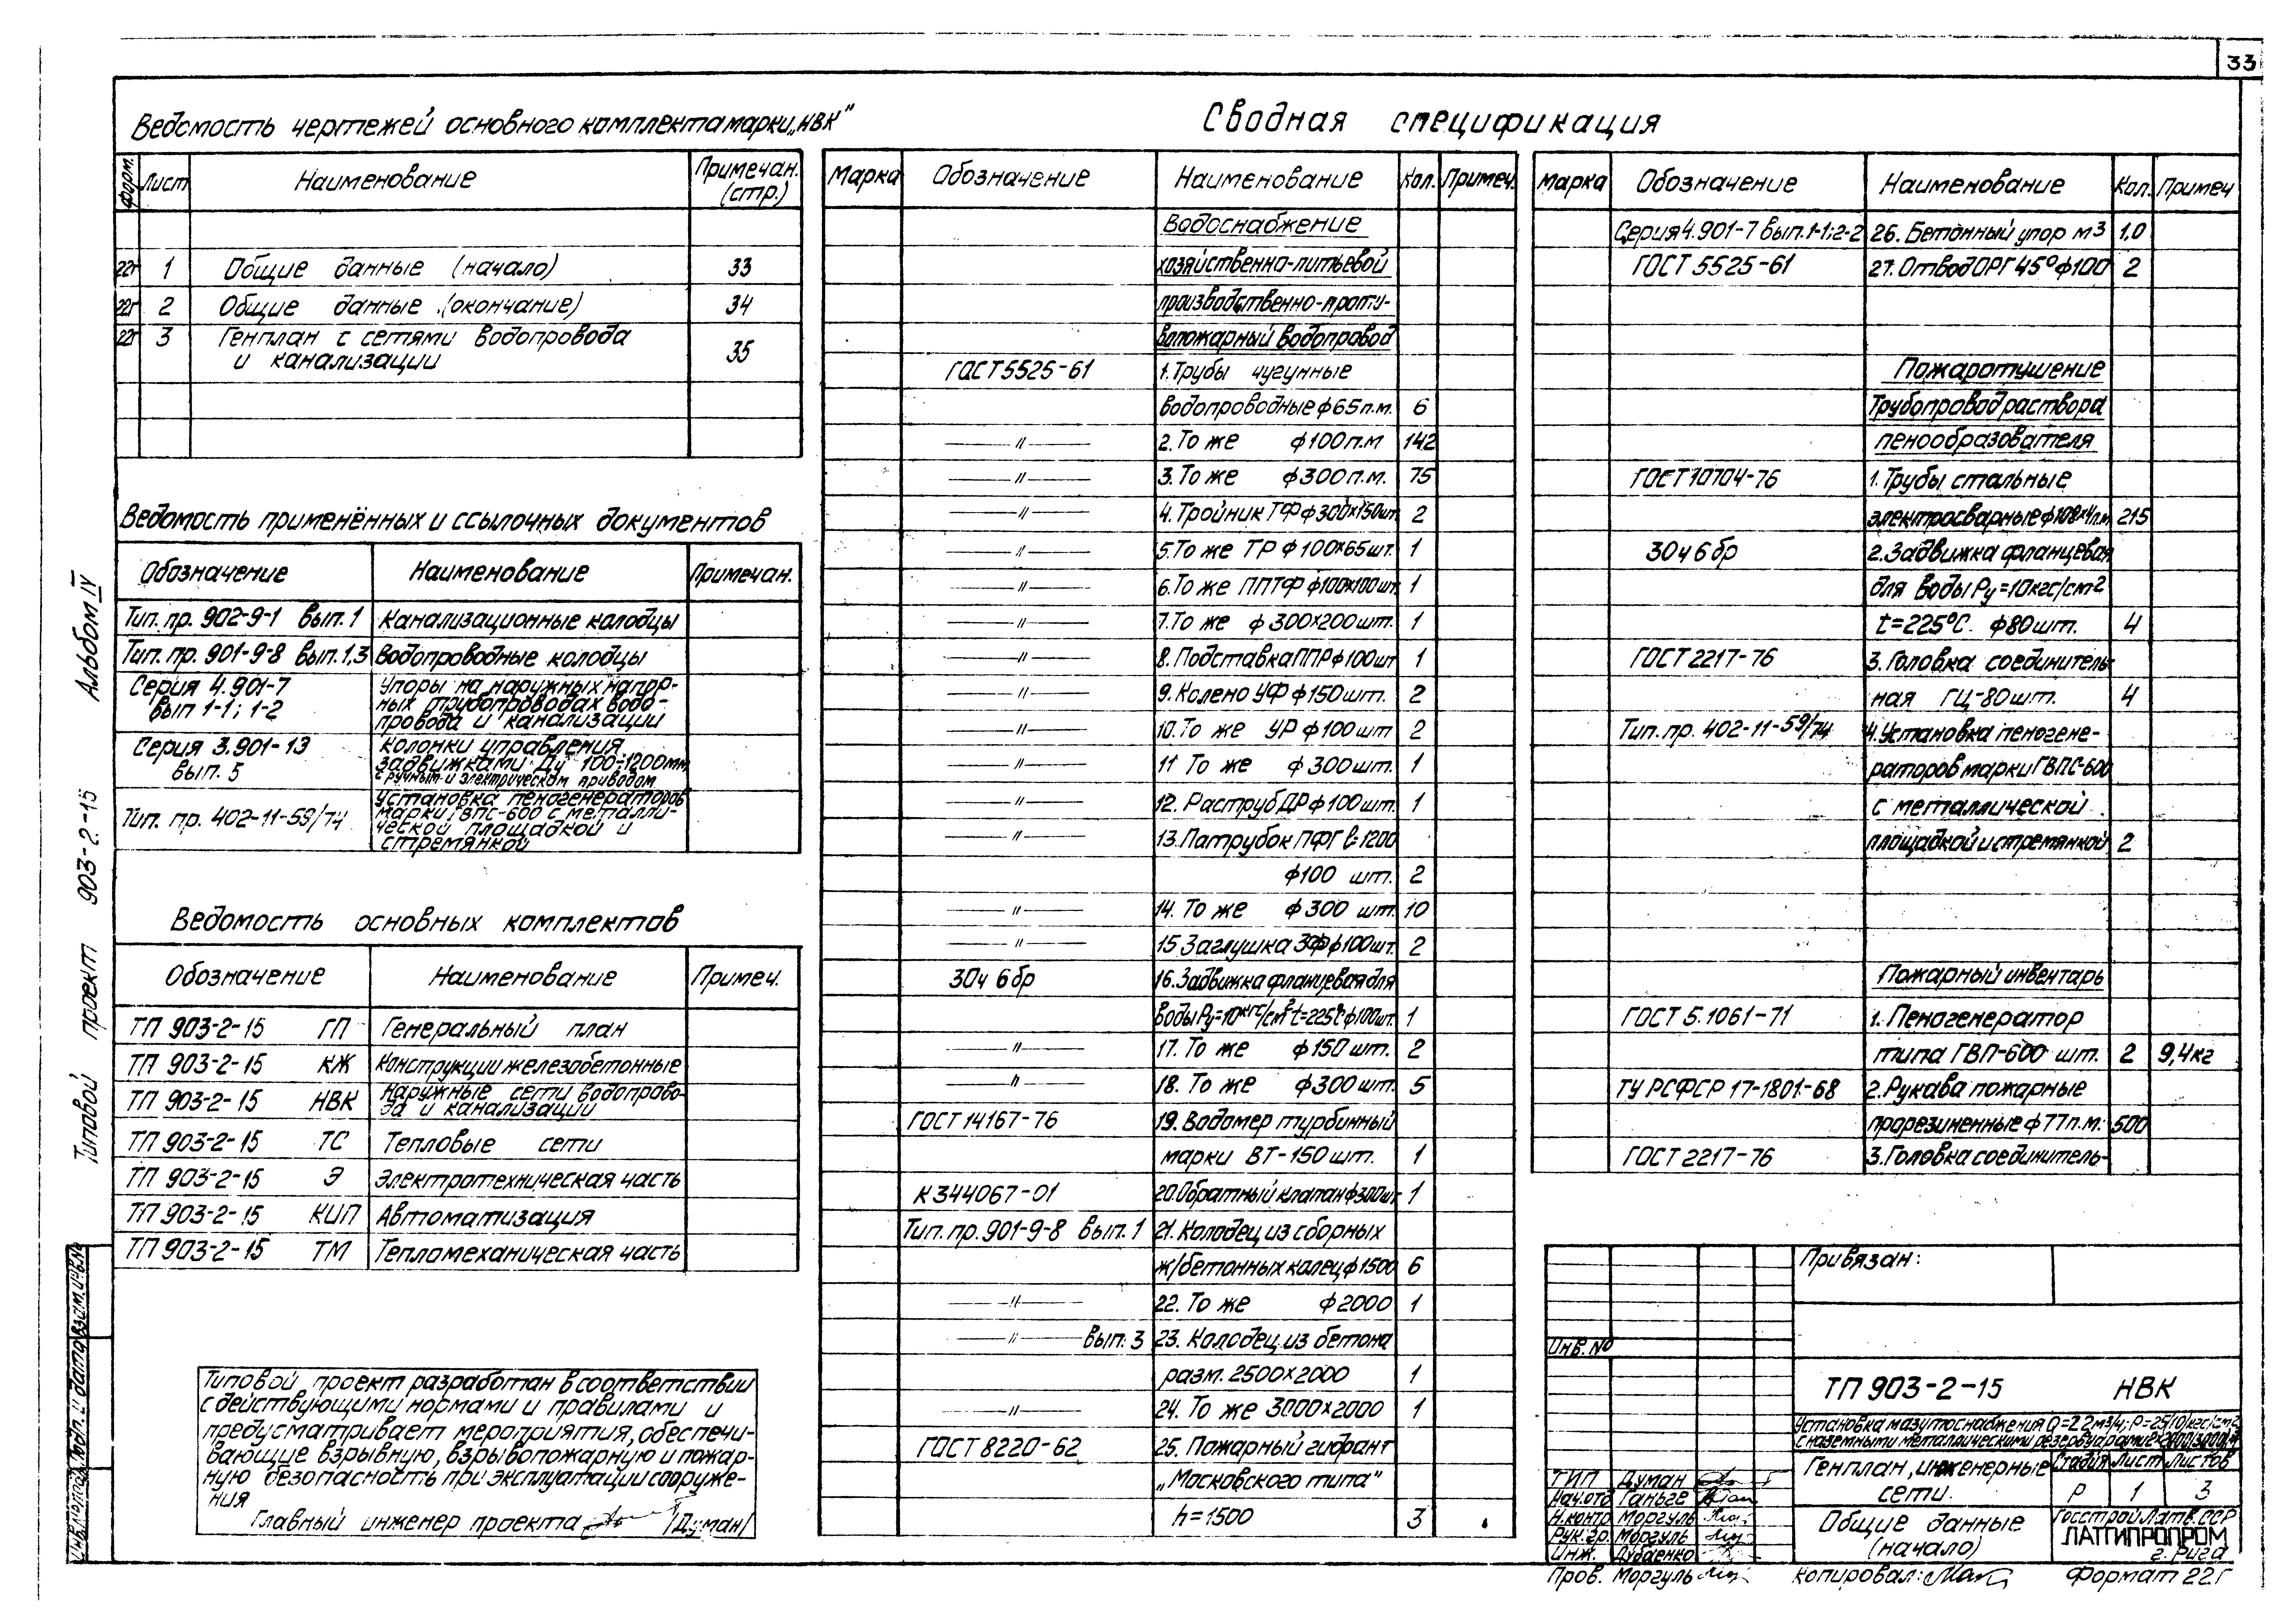 33
Ведомость чертежей основного комплекта марки „НВК"
Форм. Лист Наименование Примечан. (стр.)
22г 1 Общие данные (начало) 33
22г 2 Общие данные (окончание) 34
22г 3 Генплан с сетями водопровода
и канализации 35
Ведомость применённых и ссылочных документов
Обозначение Наименование Примечан.
Тип. пр. 902-9-1 вып. 1 Канализационные колодцы
Тип. пр. 901-9-8 вып. 1,3 Водопроводные колодцы
Серия 4.901-7
вып 1-1; 1-2
Упоры на наружных напор-
ных трубопроводах водо-
провода и канализации
Серия 3.901-13
вып. 5
Колонки управления
задвижками Ду 100÷1200мм
с ручным и электрическом приводом
Тип. пр. 402-11-59/74
Установка пеногенераторов
марки ГВПС-600 с металли-
ческой площадкой и
стремянкой
Ведомость основных комплектов
Обозначение Наименование Примеч.
ТП 903-2-15 ГП Генеральный план
ТП 903-2-15 КЖ Конструкции железобетонные
ТП 903-2-15 НВК Наружные сети водопрово-
да и канализации
ТП 903-2-15 ТС Тепловые сети
ТП 903-2-15 Э Электротехническая часть
ТП 903-2-15 КИП Автоматизация
ТП 903-2-15 ТМ Тепломеханическая часть
Типовой проект разработан в соответствии
с действующими нормами и правилами и
предусматривает мероприятия, обеспечи-
вающие взрывную, взрывопожарную и пожар-
ную безопасность при эксплуатации сооруже-
ния
Главный инженер проекта /Думан/
Типовой проект 903-2-15 Альбом IV
Инв.№ подл. Подп. и дата Взам. инв.№
Сводная спецификация
Марка Обозначение Наименование Кол. Примеч.
Водоснабжение
хозяйственно-питьевой
производственно-проти-
вопожарный водопровод
ГОСТ 5525-61 1. Трубы чугунные
водопроводные ф65 п.м. 6
—〃— 2. То же ф100 п.м 142
—〃— 3. То же ф300 п.м. 75
—〃— 4. Тройник ТФ ф300х150 шт. 2
—〃— 5. То же ТР ф100х65 шт. 1
—〃— 6. То же ППТФ ф100х100 шт. 1
—〃— 7. То же ф300х200 шт. 1
—〃— 8. Подставка ППР ф100 шт 1
—〃— 9. Колено УФ ф150 шт. 2
—〃— 10. То же УР ф100 шт 2
—〃— 11 То же ф300 шт. 1
—〃— 12. Раструб ДР ф100 шт. 1
—〃— 13. Патрубок ПФГ ℓ-1200
ф100 шт. 2
—〃— 14. То же ф300 шт. 10
—〃— 15 Заглушка ЗФ ф100 шт. 2
30ч 6 бр 16. Задвижка фланцевая для
воды Ру=10кгс/см² t=225°С ф100 шт. 1
—〃— 17. То же ф150 шт. 2
—〃— 18. То же ф300 шт. 5
ГОСТ 14167-76 19. Водомер турбинный
марки ВТ-150 шт. 1
К 344067-01 20. Обратный клапан ф300 шт 1
Тип. пр. 901-9-8 вып. 1 21. Колодец из сборных
ж/бетонных колец ф1500 6
—〃— 22. То же ф2000 1
—〃— вып. 3 23. Колодец из бетона
разм. 2500х2000 1
—〃— 24. То же 3000х2000 1
ГОСТ 8220-62 25. Пожарный гидрант
„Московского типа"
h=1500 3
Марка Обозначение Наименование Кол. Примеч
Серия 4.901-7 вып. 1-1; 2-2 26. Бетонный упор м3 1,0
ГОСТ 5525-61 27. Отвод ОРГ 45° ф100 2
Пожаротушение
Трубопровод раствора
пенообразователя
ГОСТ 10704-76 1. Трубы стальные
электросварные ф108х4 п.м. 215
30ч 6 бр 2. Задвижка фланцевая
для воды Ру=10кгс/см2
t=225°С. ф80 шт. 4
ГОСТ 2217-76 3. Головка соединитель-
ная ГЦ-80 шт. 4
Тип. пр. 402-11-59/74 4. Установка пеногене-
раторов марки ГВПС-600
с металлической
площадкой и стремянкой 2
Пожарный инвентарь
ГОСТ 5.1061-71 1. Пеногенератор
типа ГВП-600 шт. 2 9,4кг
ТУ РСФСР 17-1801-68 2. Рукава пожарные
прорезиненные ф77 п.м. 500
ГОСТ 2217-76 3. Головка соединитель-
Привязан:
Инв. №
ТП 903-2-15 НВК
Установка мазутоснабжения
с наземными металлическими резервуарами
Генплан, инженерные
сети.
Стадия Лист Листов
Р 1 3
Общие данные
(начало)
Госстрой Латв. ССР
ЛАТГИПРОПРОМ
г. Рига
ГИП Думан
Нач.отд Ганьге
Н.контр Моргуль
Рук.гр. Моргуль
Инж. Дубаенко
Пров. Моргуль
Копировал:
Формат 22Г